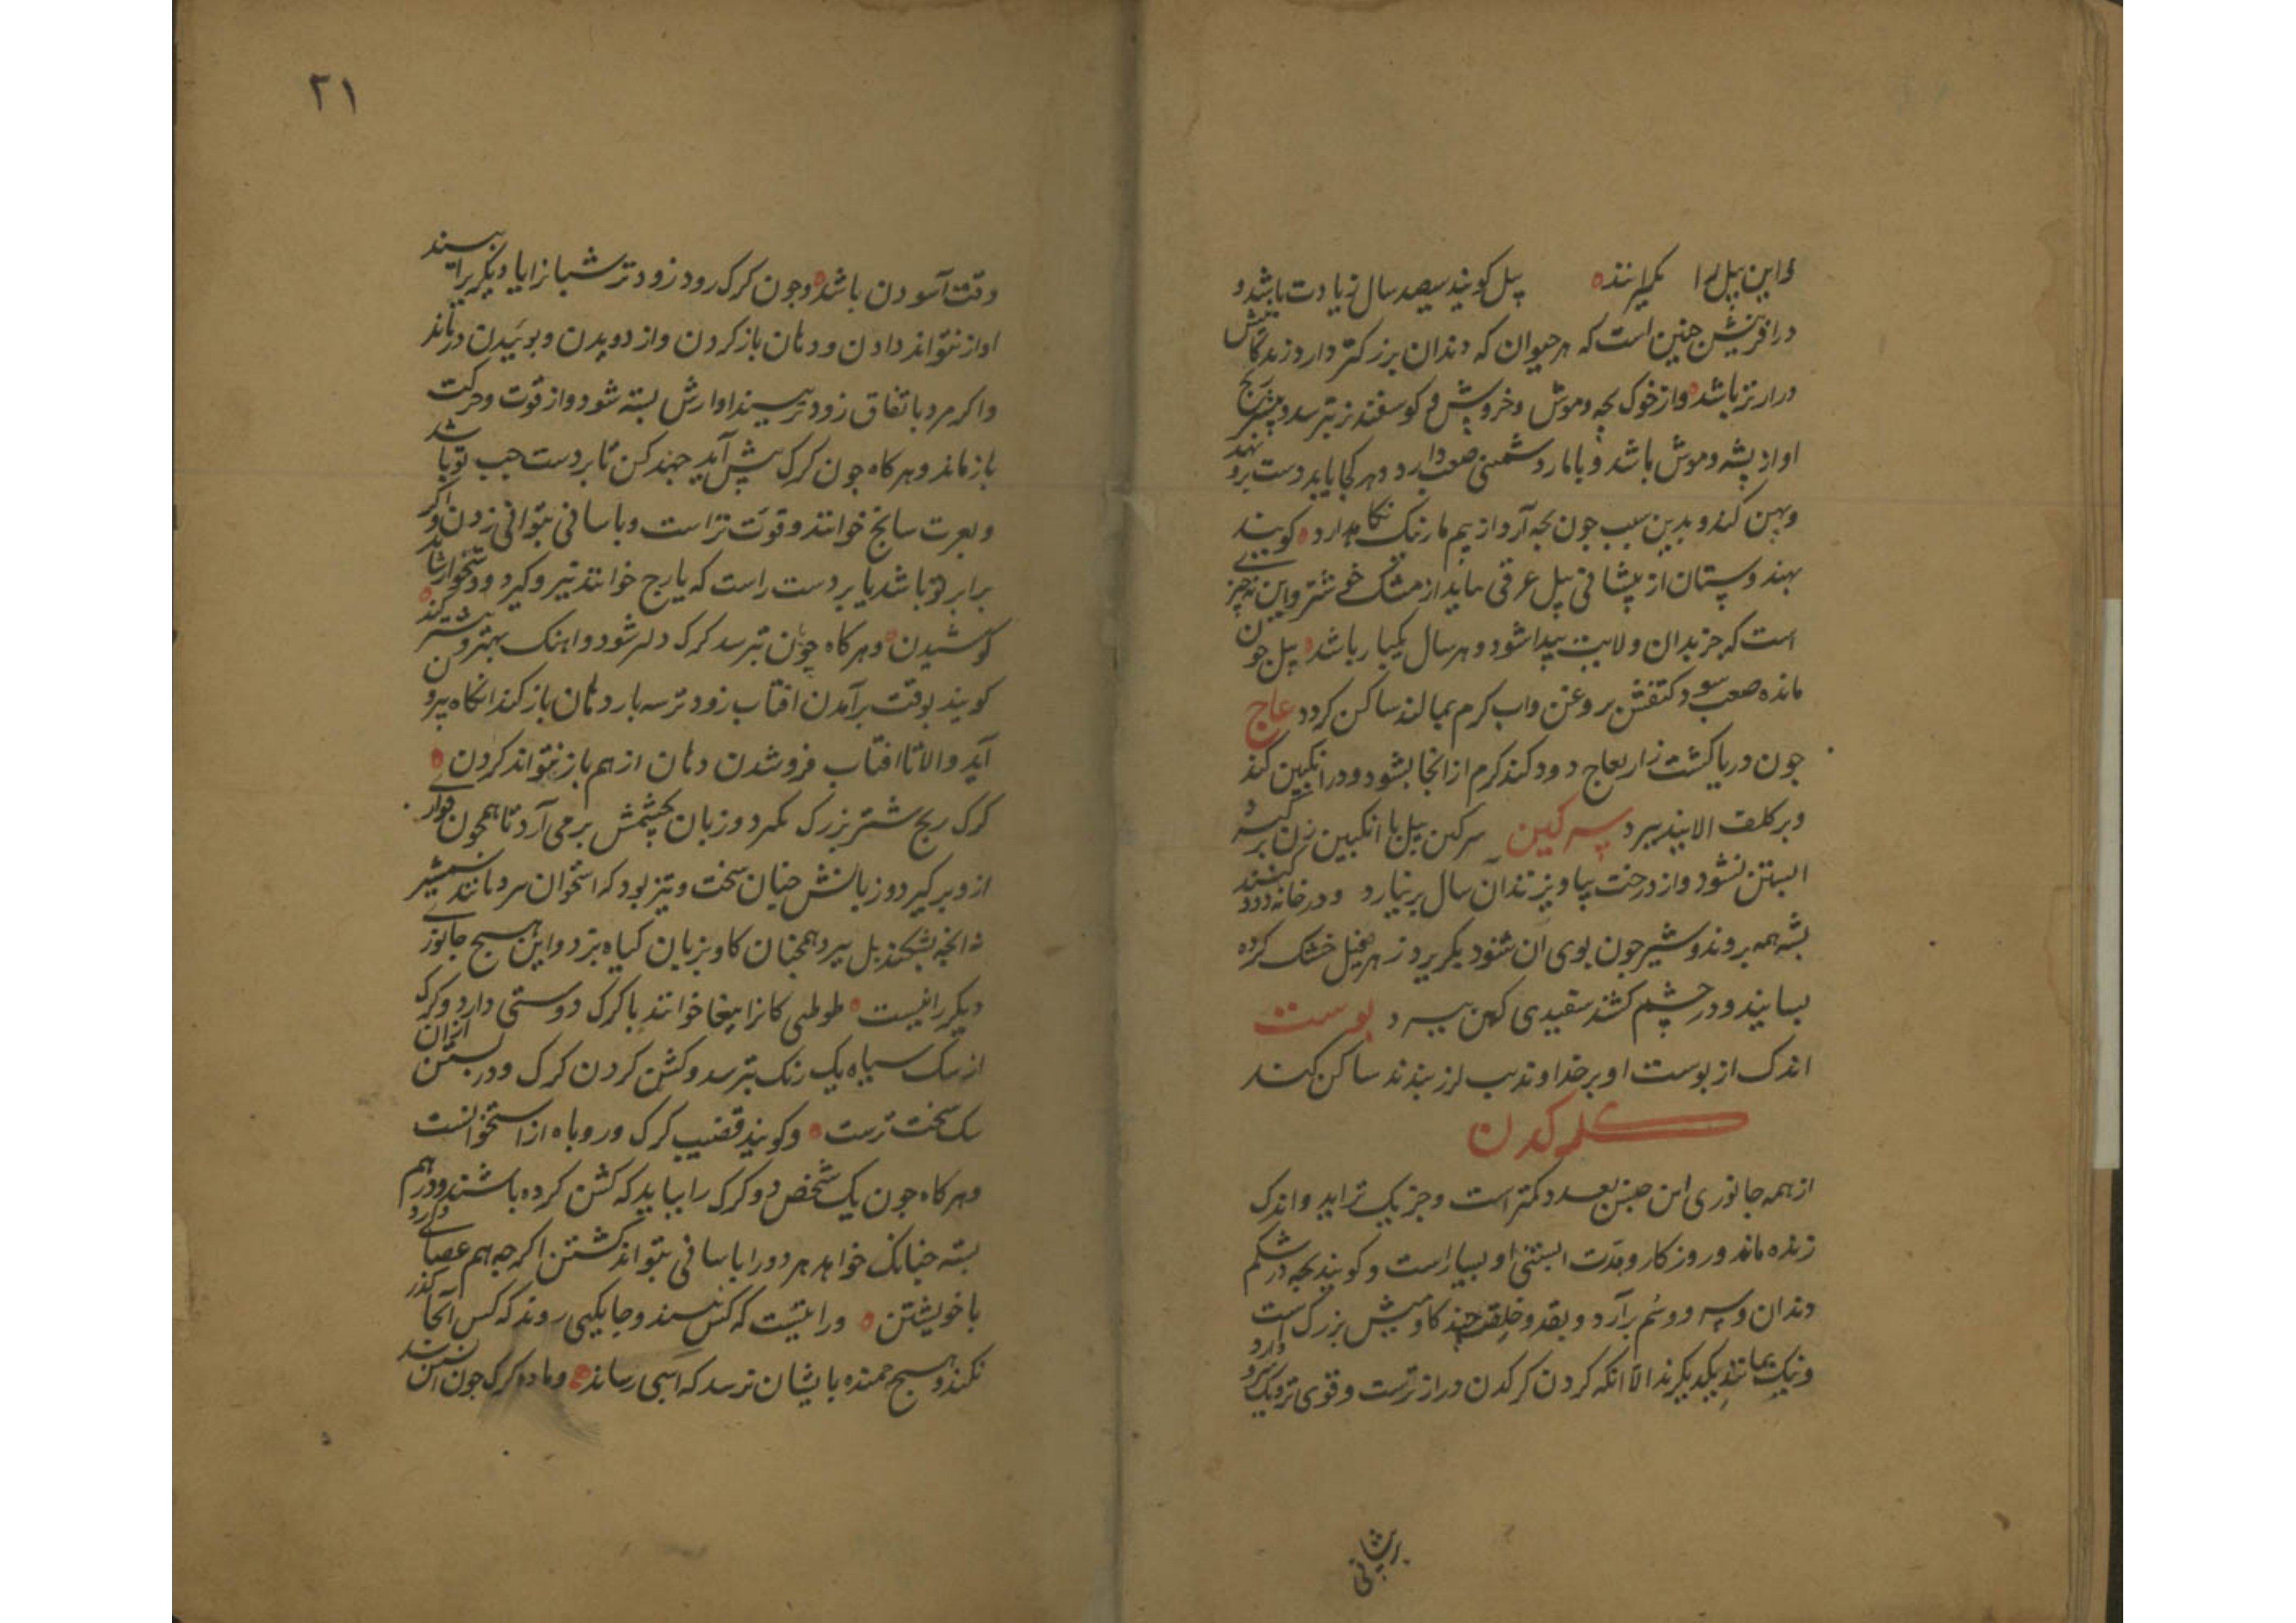 و این پیل را نکیرانند٥ پیل کویند سیصد سال زیادت باشد و
در افرینش جنین است که هر حیوان که دندان بزرکتر دارد زندکانیش
درازتر باشد٥ و از خوک بچه و موش و خروش و کوسفند نر بترسد و بیشتر رنج
او از پشه و موش باشد و با مار دشمنی صعب دارد و هر کجا یابد دست برو نهد
و پهن کند و بدین سبب جون بچه آرد از بیم مار نیک نکاه دارد٥ کویند
بهندوستان از پیشانی پیل عرقی ماید از مشک خوشتر و این نه چیزی
است که جز بدان ولایت پیدا شود و هر سال یکبار باشد٥ پیل جون
مانده صعب سود کتفش بروغن و اب کرم بمالند ساکن کردد عاج
جون در یا کشت زار بعاج دود کند کرم از انجا بشود و در انکبین کند
و بر کلف الایند ببرد سرکین سرکین پیل با انکبین زن بر کیرد
ابستن نشود و از درخت بیاویزند آن سال بر نیارد و در خانه دود کنند
پشه همه بروند و شیر جون بوی آن شنود بکریزد زهره پیل خشک کرده
بسایند و در چشم کشند سفیدی کهن ببرد پوست
اندک از پوست او بر خداوند تب لرز بندند ساکن کند
کرکدن
از همه جانوری این جنس بعدد کمتر است و جز یک نزاید و اندک
زنده ماند و روزکار و مدت ابستنی او بسیار است و کویند بچه در شکم
دندان و سرو و سم برآرد و بقد و خلقت چند کاومیش بزرک است
و نیک بمانند یکدیکرند الا انکه کردن کرکدن درازترست و قوی تر و یک سرو دارد
بر پیشانی
٢١
وقت آسودن باشد٥ و جون کرک رود زودتر شبانرا یا دیکریرا بیند
اواز نتواند دادن و دهان باز کردن و از دویدن و بوئیدن در ماند
و اکر مرد باتفاق زودتر بیند اوازش بسته شود و از قوت و حرکت
باز ماند و هر کاه جون کرک پیش آید جهد کن تا بر دست چپ تو باشد
و بعرت سانح خوانند و قوت تراست و باسانی بتوانی زدن و اکر
برابر تو باشد یا بر دست راست که بارح خوانند تیر و کیرد و دشخوار شاید
کوشیدن٥ و هر کاه چون بترسد کرک دلیر شود و اهنک بهتر و بیشتر کند٥
کویند بوقت برآمدن افتاب زودتر سه بار دهان باز کند انکاه بیرون
آید و الا تا افتاب فرو شدن دهان از هم باز نتواند کردن٥
کرک ریح شتر بزرک بکیرد و زبان بچشمش بر می آرد تا همجون قواره‌ای
از و بر کیرد و زبانش جنان سخت و تیز بود که استخوان سر مانند شمشیر
نه انجه بشکند بل ببرد همجنان کاو بزبان کیاه برد و این هیچ جانوری
دیکر را نیست٥ طوطی کانرا ببغا خوانند با کرک دوستی دارد و کرک
از سک سیاه یک رنک بترسد و کشن کردن کرک و در بستن ازان
سک سخت ترست٥ و کویند قضیب کرک و روباه از استخوانست
و هر کاه جون یک شخص دو کرک را بیابد که کشن کرده باشند و در هم
بسته جنانک خواهد هر دو را باسانی بتواند کشتن اکر جه هم عصایی دارد
با خویشتن٥ و را عتیست که کس نبیند و جایکهی روند که کس آنجا کذر
نکند و هیچ جمنده بایشان نرسد که اسی رساند٥ و ماده کرک جون ابستن شد